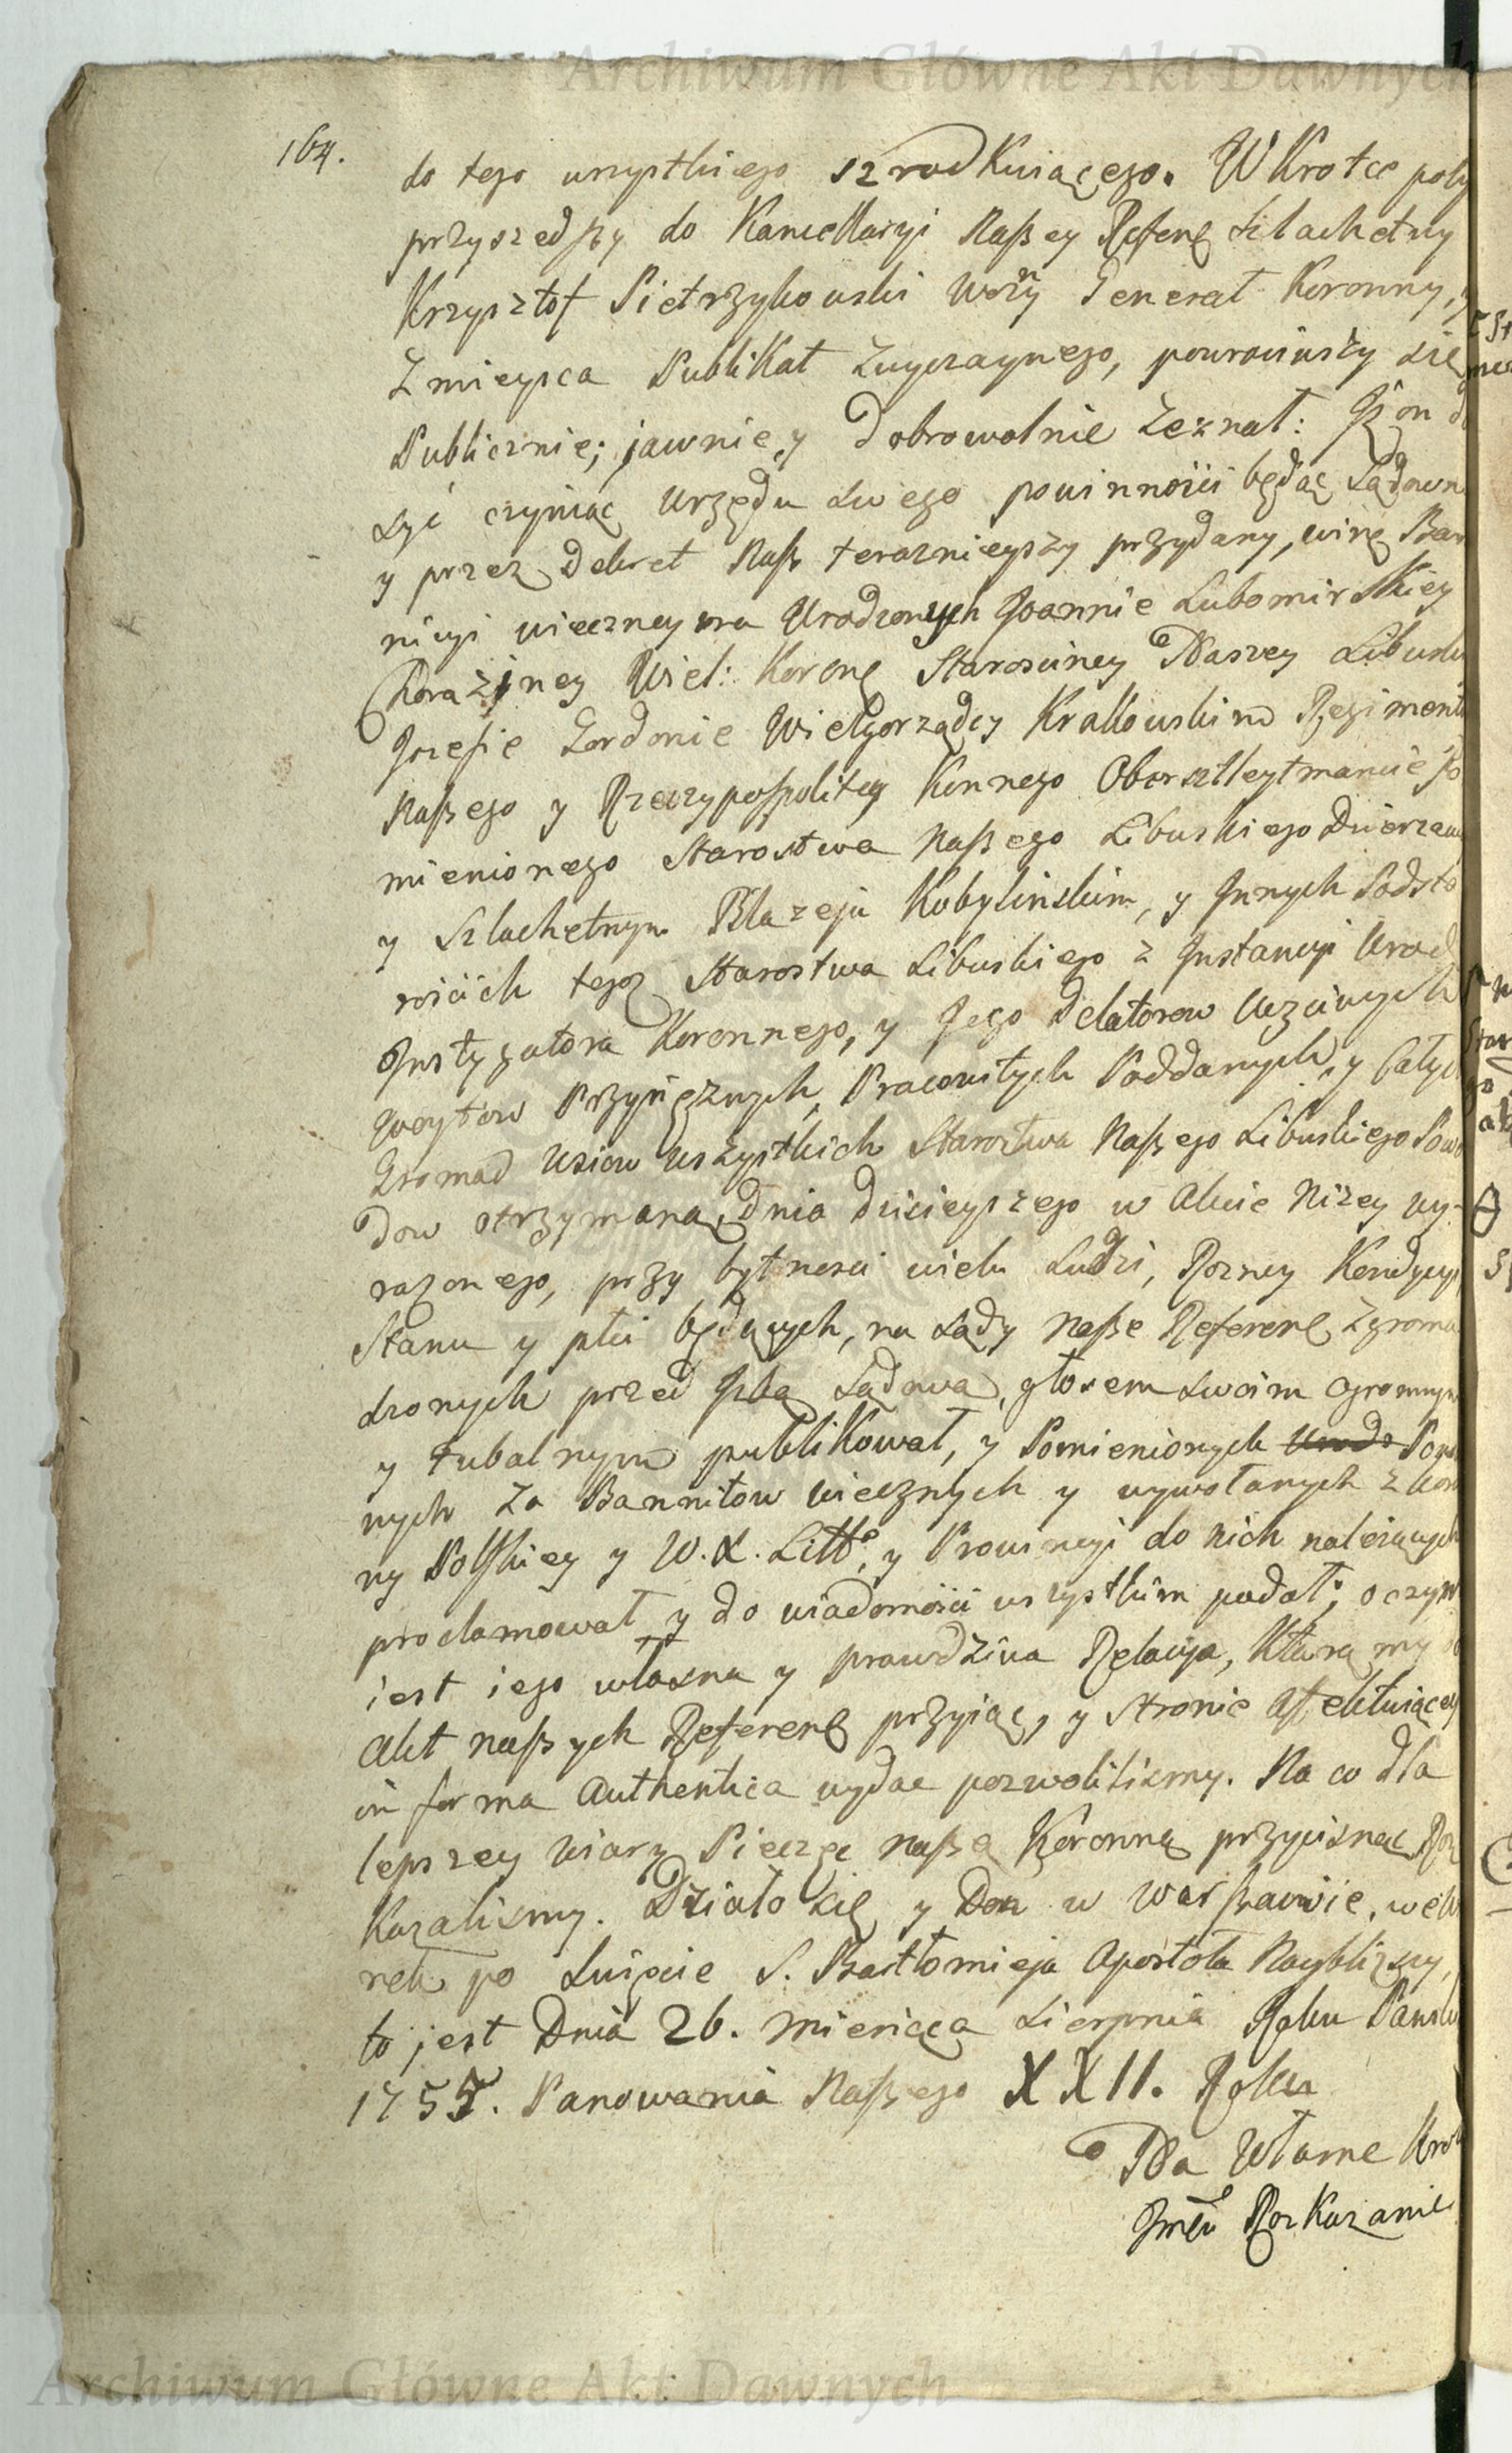 Archiwum Główne Akt Dawnych
164.
do tego wszystkiego szrodkuiącego. W Krotce poty
przyszedszy do Kancellaryi Naszey Referẽ Szlachetny
Krzysztof Pietrzykowski Woźny Generał Koronny,
Z mieysca Publikat Zwyczaynego, powrociwszy się
Publicznie, jawnie, y Dobrowolnie Zeznał: Jż on
czyniąc Urzędu swego powinności będąc Sądown
y przez Dekret Nasz teraznieyszy przydany, winę Ban
nicyi wieczney na Urodzonych Joannie Lubomirskiey
Chorążyney Wiel: Koronẽ Starosciney Naszey Libuski
Jozefie Gordonie Wielgorządcy Krakowskim Regiment
Naszego y Rzeczypospolitey Konnego Obersztleytmancie po
mienionego Starostwa Naszego Libuskiego Dzierzaw
y Szlachetnym Błazeju Kobylinskim, y Jnnych Podsta
rościch tegoż Starostwa Libuskiego z Jnstancyi Urod
Jnstygatora Koronnego, y Jego Delatorow Uczciwych
Woytow Przysięznych, Pracowitych Poddanych, y Całych
Gromad Wsiow wszystkich Starostwa Naszego Libuskiego Powo
dow otrzymaną, Dnia Dzisieyszego w Akcie Nizey wy-
razonego, przy bytnosci wielu Ludzi, Rozney Kondycyi
Stanu y płci będących, na Sądy Nasze Referenẽ zgroma
dzonych przed Jzbą Sądową, głosem swoim ogromnym
y tubalnym publikował, y Pomienionych Urodo Pozwa
nych za Bannitow wiecznych y wywołanych z Koro
ny Polskiey y W. X. Litto, y Prowincyi do nich należących
proclamował y do wiadomości wszystkim podał, o czym
iest iego własna y prawdziwa Relacya, Którą my do
Akt naszych Referenẽ przyiąć, y stronie Affektuiącey
in forma Authentica wydać pozwolilismy. Na co dla
lepszey wiary Pieczęć naszą Koronną przycisnąć Roz
Kazalismy. Działo się y Dan w Warszawie, we Wto
rek po Swięcie S. Bartłomieja Apostoła Nayblizszy,
to jest Dnia 26. Miesiąca Sierpnia Roku Pansk
1755. Panowania Naszego XXII. Roku
Na Własne Krol
Jmći Rozkazanie
Archiwum Główne Akt Dawnych